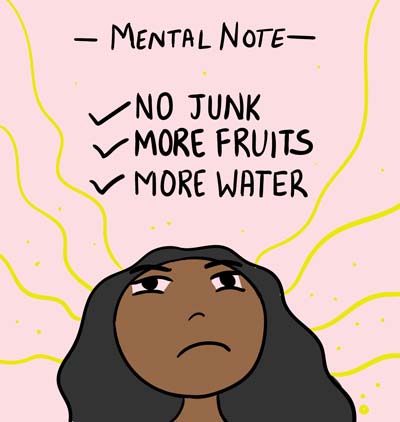 — MENTAL NOTE —
✓ NO JUNK
✓ MORE FRUITS
✓ MORE WATER